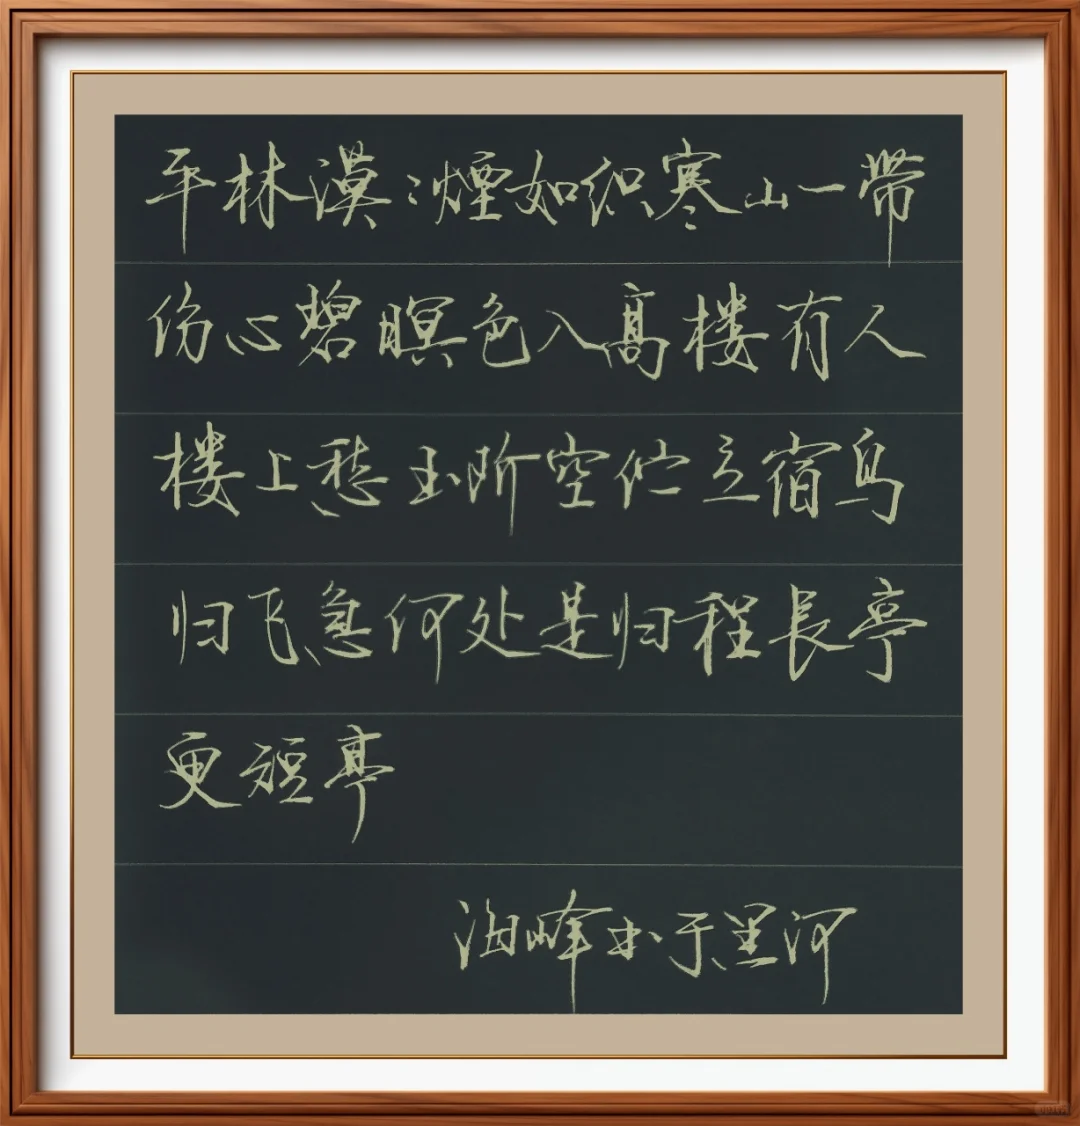 平林漠漠煙如织寒山一带
伤心碧暝色入高楼有人
楼上愁玉阶空伫立宿鸟
归飞急何处是归程長亭
更短亭
峰书于黑河